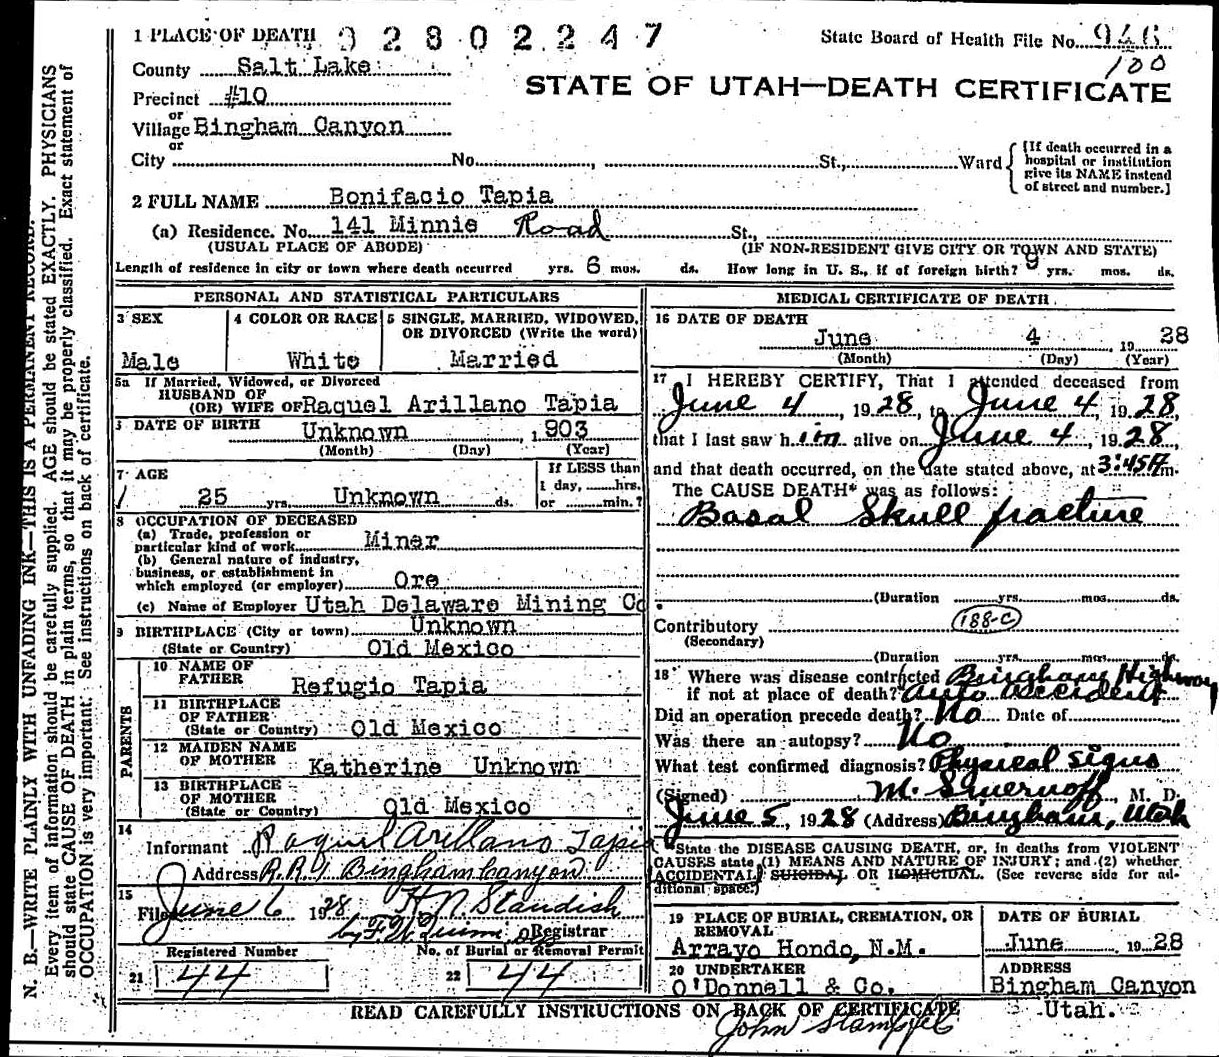 1 PLACE OF DEATH 9 2 8 0 2 2 4 7
State Board of Health File No. 946
100
County Salt Lake
STATE OF UTAH—DEATH CERTIFICATE
Precinct #10
or
Village Bingham Canyon
or
City No. , St., Ward
{If death occurred in a
hospital or institution
give its NAME instead
of street and number.}
2 FULL NAME Bonifacio Tapia
(a) Residence. No. 141 Minnie Road St.,
(USUAL PLACE OF ABODE) (IF NON-RESIDENT GIVE CITY OR TOWN AND STATE)
Length of residence in city or town where death occurred yrs. 6 mos. ds. How long in U. S., if of foreign birth? 9 yrs. mos. ds.
PERSONAL AND STATISTICAL PARTICULARS
3 SEX
Male
4 COLOR OR RACE
White
5 SINGLE, MARRIED, WIDOWED,
OR DIVORCED (Write the word)
Married
5a If Married, Widowed, or Divorced
HUSBAND OF
(OR) WIFE OF Raquel Arillano Tapia
DATE OF BIRTH Unknown , 1903
(Month) (Day) (Year)
7 AGE
25 yrs. Unknown ds.
If LESS than
1 day, hrs.
or min.?
8 OCCUPATION OF DECEASED
(a) Trade, profession or
particular kind of work Miner
(b) General nature of industry,
business, or establishment in
which employed (or employer) Ore
(c) Name of Employer Utah Delaware Mining Co.
9 BIRTHPLACE (City or town) Unknown
(State or Country) Old Mexico
PARENTS
10 NAME OF
FATHER Refugio Tapia
11 BIRTHPLACE
OF FATHER
(State or Country) Old Mexico
12 MAIDEN NAME
OF MOTHER Katherine Unknown
13 BIRTHPLACE
OF MOTHER
(State or Country) Old Mexico
14
Informant Raquel Arillano Tapia
Address R.R.Y. Bingham Canyon
15
Filed June 6 1928 H N Standish
by F. W. Quinn, Registrar
Registered Number No. of Burial or Removal Permit
21 44 22 44
MEDICAL CERTIFICATE OF DEATH
16 DATE OF DEATH
June 4 , 1928
(Month) (Day) (Year)
17 I HEREBY CERTIFY, That I attended deceased from
June 4 , 1928, to June 4, 1928,
that I last saw him alive on June 4 , 1928,
and that death occurred, on the date stated above, at 3:45 A m.
The CAUSE DEATH* was as follows:
Basal Skull fracture
(Duration yrs. mos. ds.
Contributory 188-C
(Secondary)
(Duration yrs. mos. ds.
18 Where was disease contracted Bingham Highway
if not at place of death? Auto accident
Did an operation precede death? No Date of
Was there an autopsy? No
What test confirmed diagnosis? Physical signs
(Signed) M. Smernoff, M. D.
June 5, 1928 (Address) Bingham, Utah
*State the DISEASE CAUSING DEATH, or, in deaths from VIOLENT
CAUSES state (1) MEANS AND NATURE OF INJURY; and (2) whether
ACCIDENTAL SUICIDAL OR HOMICIDAL. (See reverse side for ad-
ditional space.)
19 PLACE OF BURIAL, CREMATION, OR
REMOVAL
Arrayo Hondo, N.M.
DATE OF BURIAL
June 1928
20 UNDERTAKER
O'Donnell & Co.
ADDRESS
Bingham Canyon
Utah.
READ CAREFULLY INSTRUCTIONS ON BACK OF CERTIFICATE
John
N. B.—WRITE PLAINLY WITH UNFADING INK—THIS IS A PERMANENT RECORD.
Every item of information should be carefully supplied. AGE should be stated EXACTLY. PHYSICIANS
should state CAUSE OF DEATH in plain terms, so that it may be properly classified. Exact statement of
OCCUPATION is very important. See instructions on back of certificate.